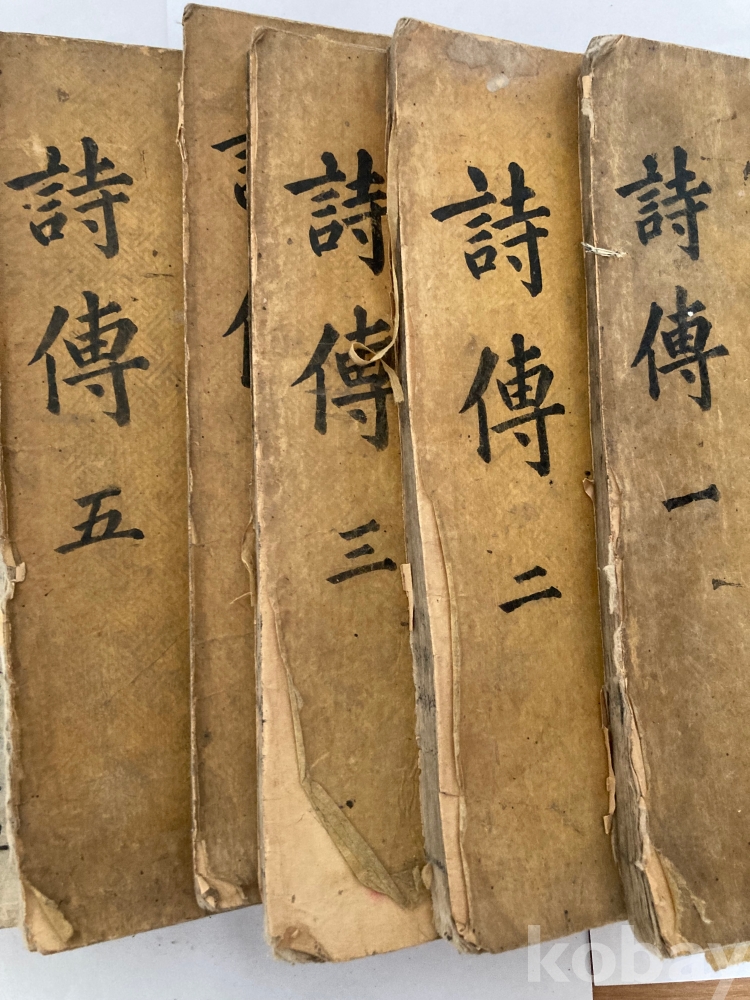 詩傳一
詩傳二
詩傳三
詩傳五
kobay